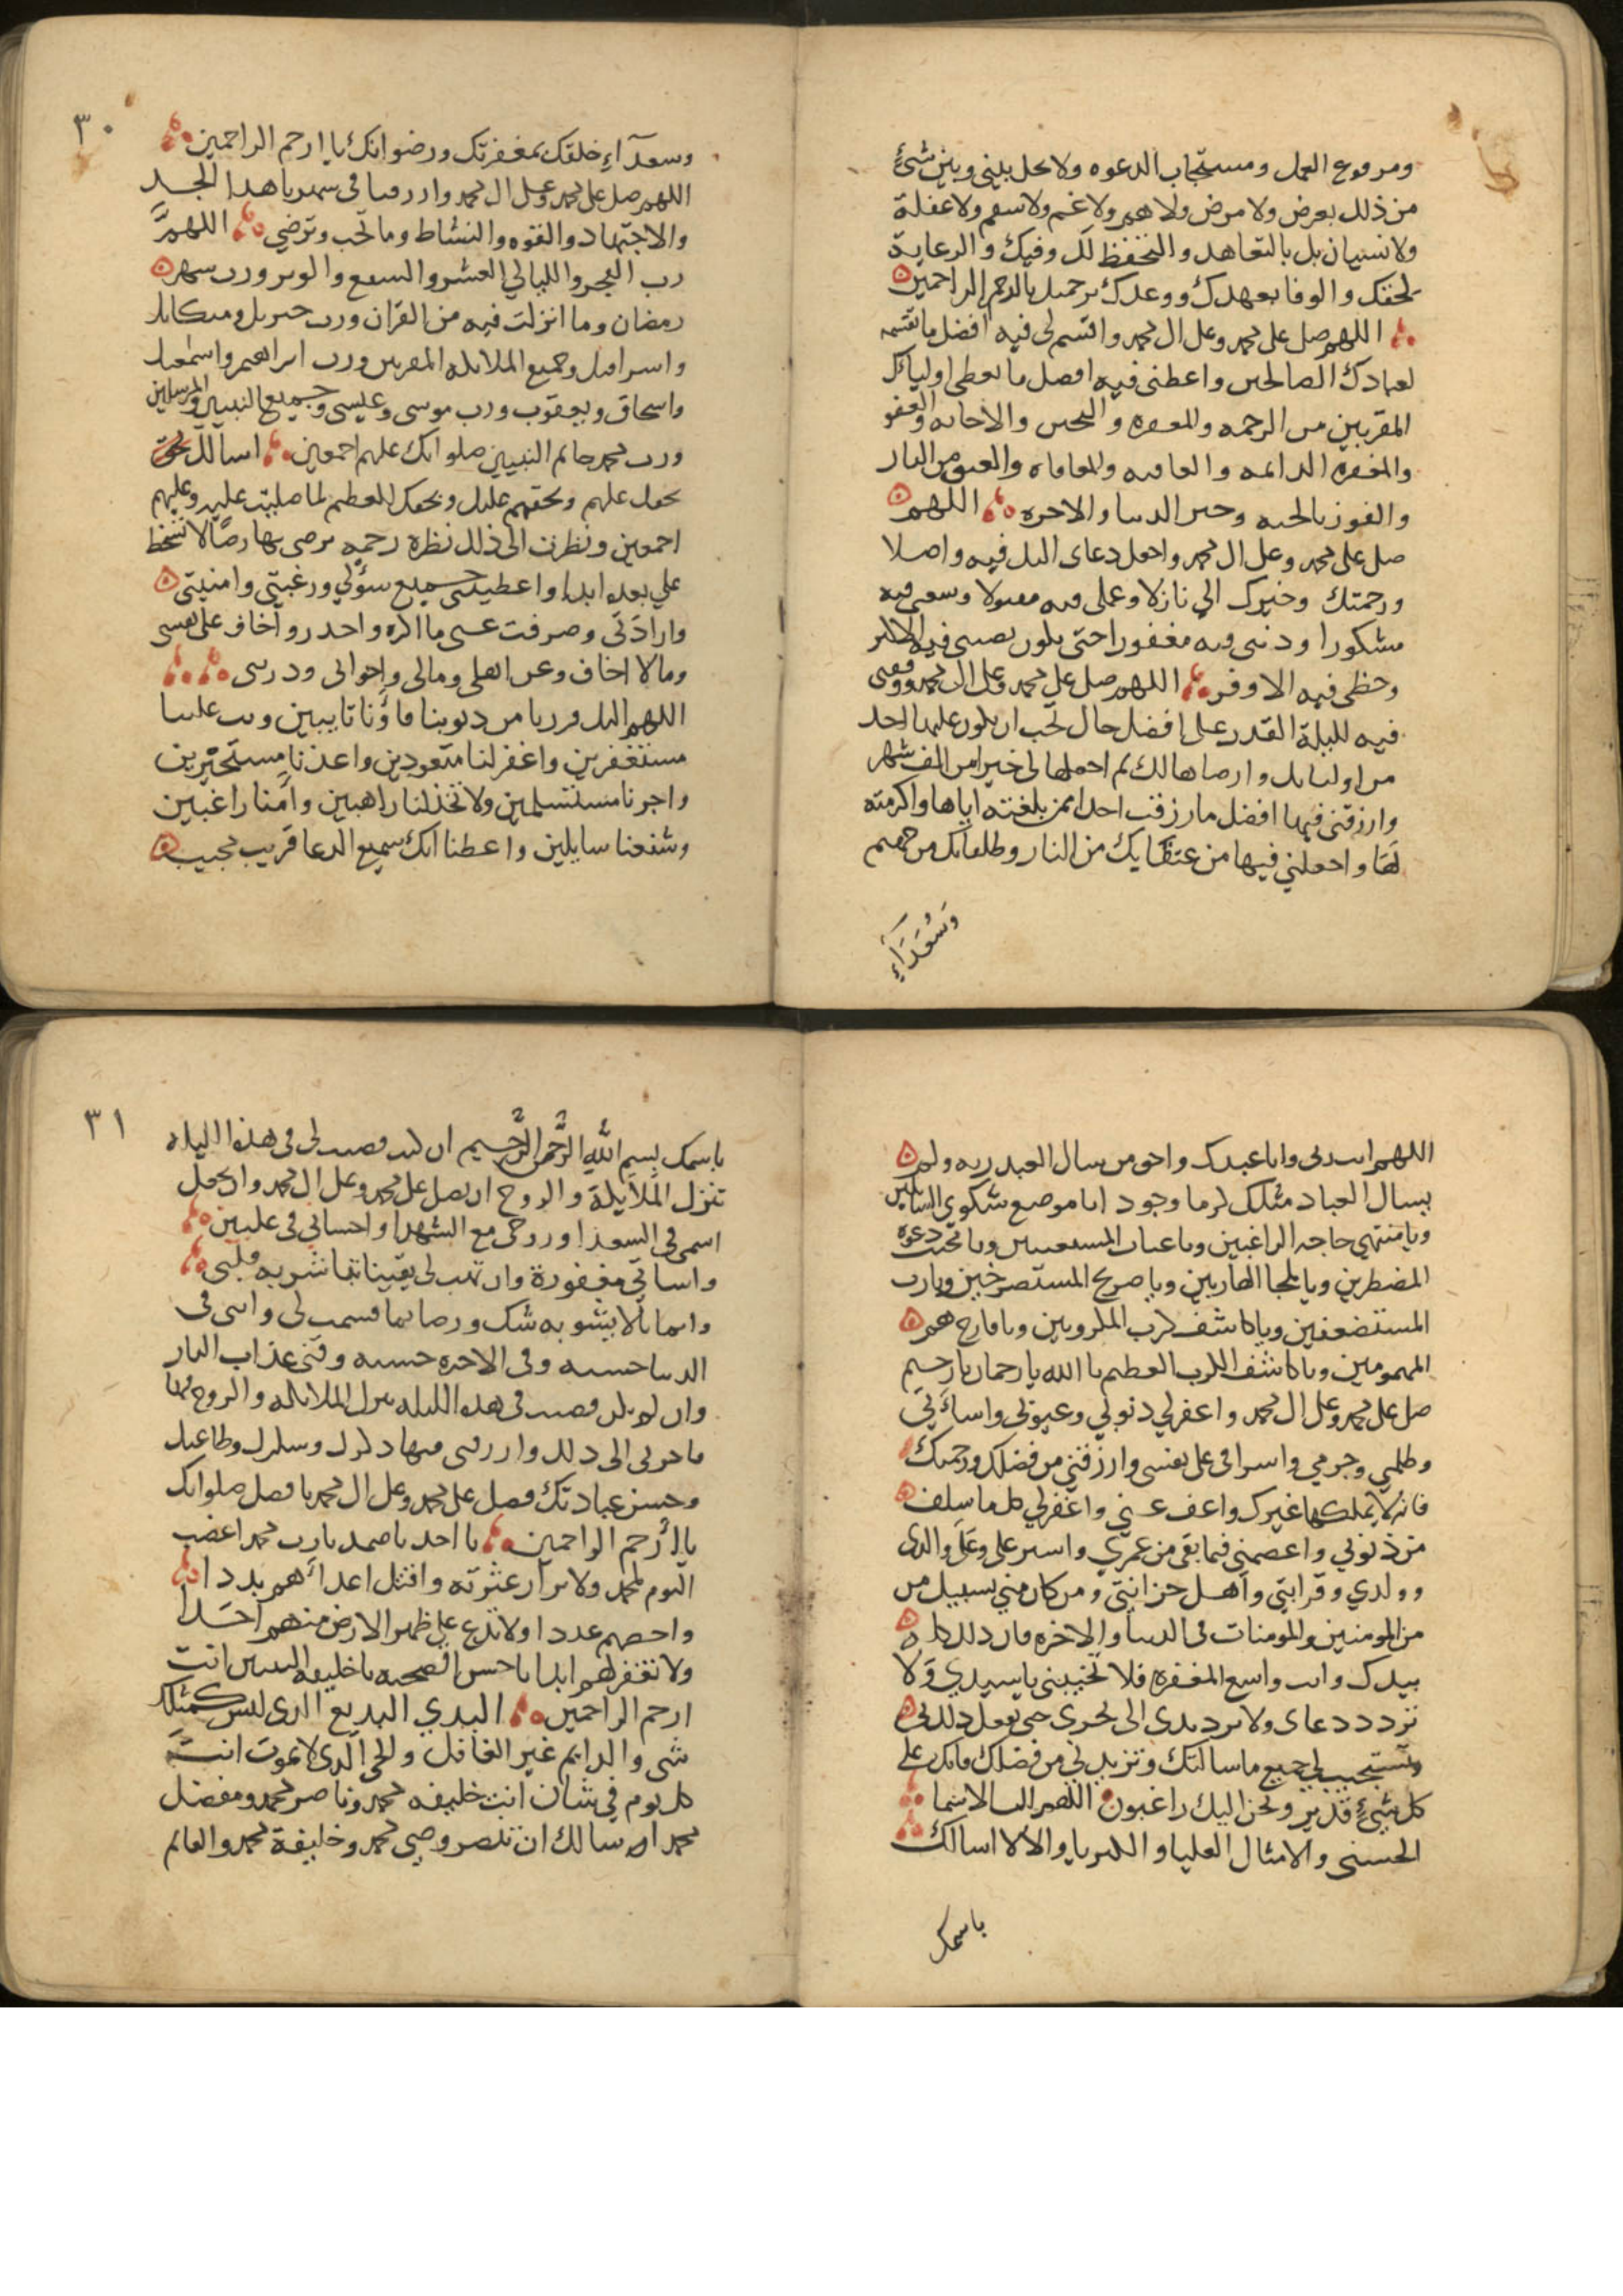 ومرفوع العمل ومستجاب الدعوه ولا تحل بيني وبين شئ
من ذلك بعرض ولا مرض ولا هم ولا غم ولا سقم ولا غفلة
ولا نسيان بل بالتعاهد والتحفظ لك وفيك والرعاية
لحقك والوفا بعهدك ووعدك برحمتك يا ارحم الراحمين
اللهم صل على محمد وعلى ال محمد واقسم لي فيه افضل ما تقسمه
لعبادك الصالحين واعطني فيه افضل ما تعطي اولياك
المقربين من الرحمه والمغفره والتحنن والاجابه والعفو
والمغفره الدائمه والعافيه والمعافاه والعتق من النار
والفوز بالجنه وخير الدنيا والاخره اللهم
صل على محمد وعلى ال محمد واجعل دعاى اليك فيه واصلا
ورحمتك وخيرك الي نازلا وعملي فيه مقبولا وسعيي فيه
مشكورا وذنبي فيه مغفورا حتى يكون نصيبي فيه الاكثر
وحظي فيه الاوفر اللهم صل على محمد وعلى ال محمد ووفقني
فيه لليلة القدر على افضل حال تحب ان يكون عليها احد
من اوليايك وارضاها لك ثم اجعلها لي خيرا من الف شهر
وارزقني فيها افضل ما رزقت احدا ممن بلغته اياها واكرمته
بها واجعلني فيها من عتقايك من النار وطلقايك من جهنم
وَسُعَدَآءِ
٣٠
وسعدآءِ خلقك بمغفرتك ورضوانك يا ارحم الراحمين
اللهم صل على محمد وعلى ال محمد وارزقنا في شهرنا هذا الجد
والاجتهاد والقوه والنشاط وما تحب وترضي اللهم
رب الفجر والليالي العشر والشفع والوتر ورب شهر
رمضان وما انزلت فيه من القران ورب جبريل وميكايل
واسرافيل وجميع الملايكه المقربين ورب ابراهيم واسمعيل
واسحاق ويعقوب ورب موسى وعيسى وجميع النبيين والمرسلين
ورب محمد خاتم النبيين صلواتك عليهم اجمعين اسالك بحق
بحقك عليهم وبحقهم عليك وبحقك العظيم لما صليت عليه وعليهم
اجمعين ونظرت الي ذلك نظرة رحمه ترضى بها رضًا لا تسخط
علي بعده ابدا واعطيتني جميع سؤلي ورغبتي وامنيتي
وارادتي وصرفت عني ما اكره واحذر واخاف على نفسي
وما لا اخاف وعن اهلي ومالي واخواني وذريتي
اللهم اليك فررنا من ذنوبنا فاؤنا تايبين وتب علينا
مستغفرين واغفر لنا متعوذين واعذنا مستجيرين
واجرنا مستسلمين ولا تخذلنا راهبين وامنا راغبين
وشفعنا سايلين واعطنا انك سميع الدعا قريب مجيب
اللهم انت ربي وانا عبدك واحق من سال العبد ربه ولم
يسال العباد مثلك كرما وجودا يا موضع شكوى السايلين
ويا منتهي حاجه الراغبين ويا غياث المستغيثين ويا مجيب دعوه
المضطرين ويا ملجا الهاربين ويا صريخ المستصرخين ويا رب
المستضعفين ويا كاشف كرب المكروبين ويا فارج هم
المهمومين ويا كاشف الكرب العظيم يا الله يا رحمان يا رحيم
صل على محمد وعلى ال محمد واغفر لي ذنوبي وعيوبي واساتي
وظلمي وجرمي واسرافي على نفسي وارزقني من فضلك ورحمتك
فانه لا يملكها غيرك واعف عني واغفر لي كل ما سلف
من ذنوبي واعصمني فيما بقي من عمري واستر علي وعلى والدي
وولدي وقرابتي واهل حزانتي ومن كان مني بسبيل من
من المومنين والمومنات في الدنيا والاخره فان ذلك كله
بيدك وانت واسع المغفره فلا تخيبني يا سيدي ولا
تردد دعاى ولا ترد يدى الى نحرى حتى تفعل ذلك بي
وتستجيب لي جميع ما سالتك وتزيدني من فضلك فانك على
كل شئٍ قدير ونحن اليك راغبون اللهم لك الاسما
الحسنى والامثال العليا والكبريا والالا اسالك
باسمك
٣١
باسمك بسم الله الرحمن الرحيم ان كنت قضيت لي في هذه الليله
تنزل الملايكة والروح ان تصلى على محمد وعلى ال محمد وان تجعل
اسمي في السعدا وروحي مع الشهدا واحساني في عليين
واساتي مغفورة وان تهب لي يقينا تباشر به قلبي
وايمانا لا يشوبه شك ورضا بما قسمت لي واتني في
الدنيا حسنه وفي الاخره حسنه وقني عذاب النار
وان لم تكن قضيت في هذه الليله تنزل الملايكه والروح فيها
فاخرني الى ذلك وارزقني فيها ذكرك وشكرك وطاعتك
وحسن عبادتك فصل على محمد وعلى ال محمد بافضل صلواتك
يا ارحم الراحمين يا احد يا صمد يا رب محمد اغضب
اليوم لمحمد ولابرار عترته واقتل اعدائهم بددا
واحصهم عددا ولا تدع على ظهر الارض منهم احدا
ولا تغفر لهم ابدا يا حسن الصحبه يا خليفه النبيين انت
ارحم الراحمين البدي البديع الذي ليس كمثلك
شي والدايم غير الغافل والحي الذي لا يموت انت
كل يوم في شان انت خليفه محمد وناصر محمد ومفضل
محمد اسالك ان تنصر وصي محمد وخليفة محمد والقايم